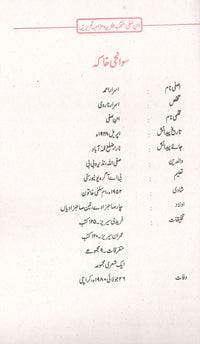 ابن صفی: منتخب طنزیہ و مزاحیہ تحریریں
سوانحی خاکہ
اصلی نام : اسرار احمد
تخلص : اسرار ناروی
قلمی نام : ابن صفی
تاریخ پیدائش : اپریل ۱۹۲۸ء
جائے پیدائش : نارا، ضلع الہ آباد
والدین : صفی اللہ، نذیراً بی بی
تعلیم : بی اے آگرہ یونیورسٹی
شادی : ۱۹۵۳ء، ام سلمیٰ خاتون
اولاد : چار صاحبزادے، تین صاحبزادیاں
تخلیقات : فریدی سیریز۔ ۱۲۵ کتب
عمران سیریز۔ ۱۲۰ کتب
متفرقات۔ ۹ مجموعے
ایک شعری مجموعہ
وفات : ۲۶ جولائی ۱۹۸۰ء، کراچی